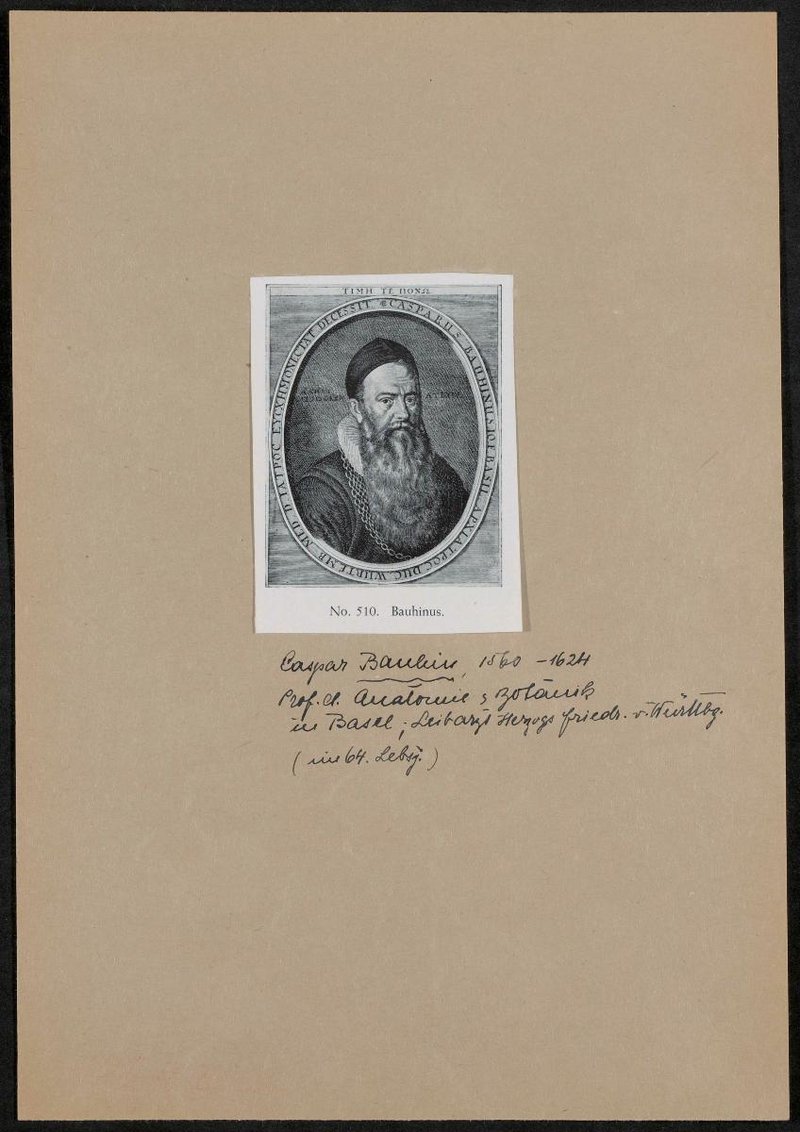 ΤΙΜΗ ΤΕ ΠΟΝΩ
CASPARUS BAUHINUS
BASIL. ΑΡΧΙΑΤΡΟΣ DUC. WURTEMB. MED. D.
DECESSIT.
No. 510. Bauhinus.
Caspar Bauhin, 1560 – 1624
Prof. d. Anatomie & Botanik
in Basel; Leibarzt Herzogs Friedr. v. Württbg.
(im 64. Lebsj.)